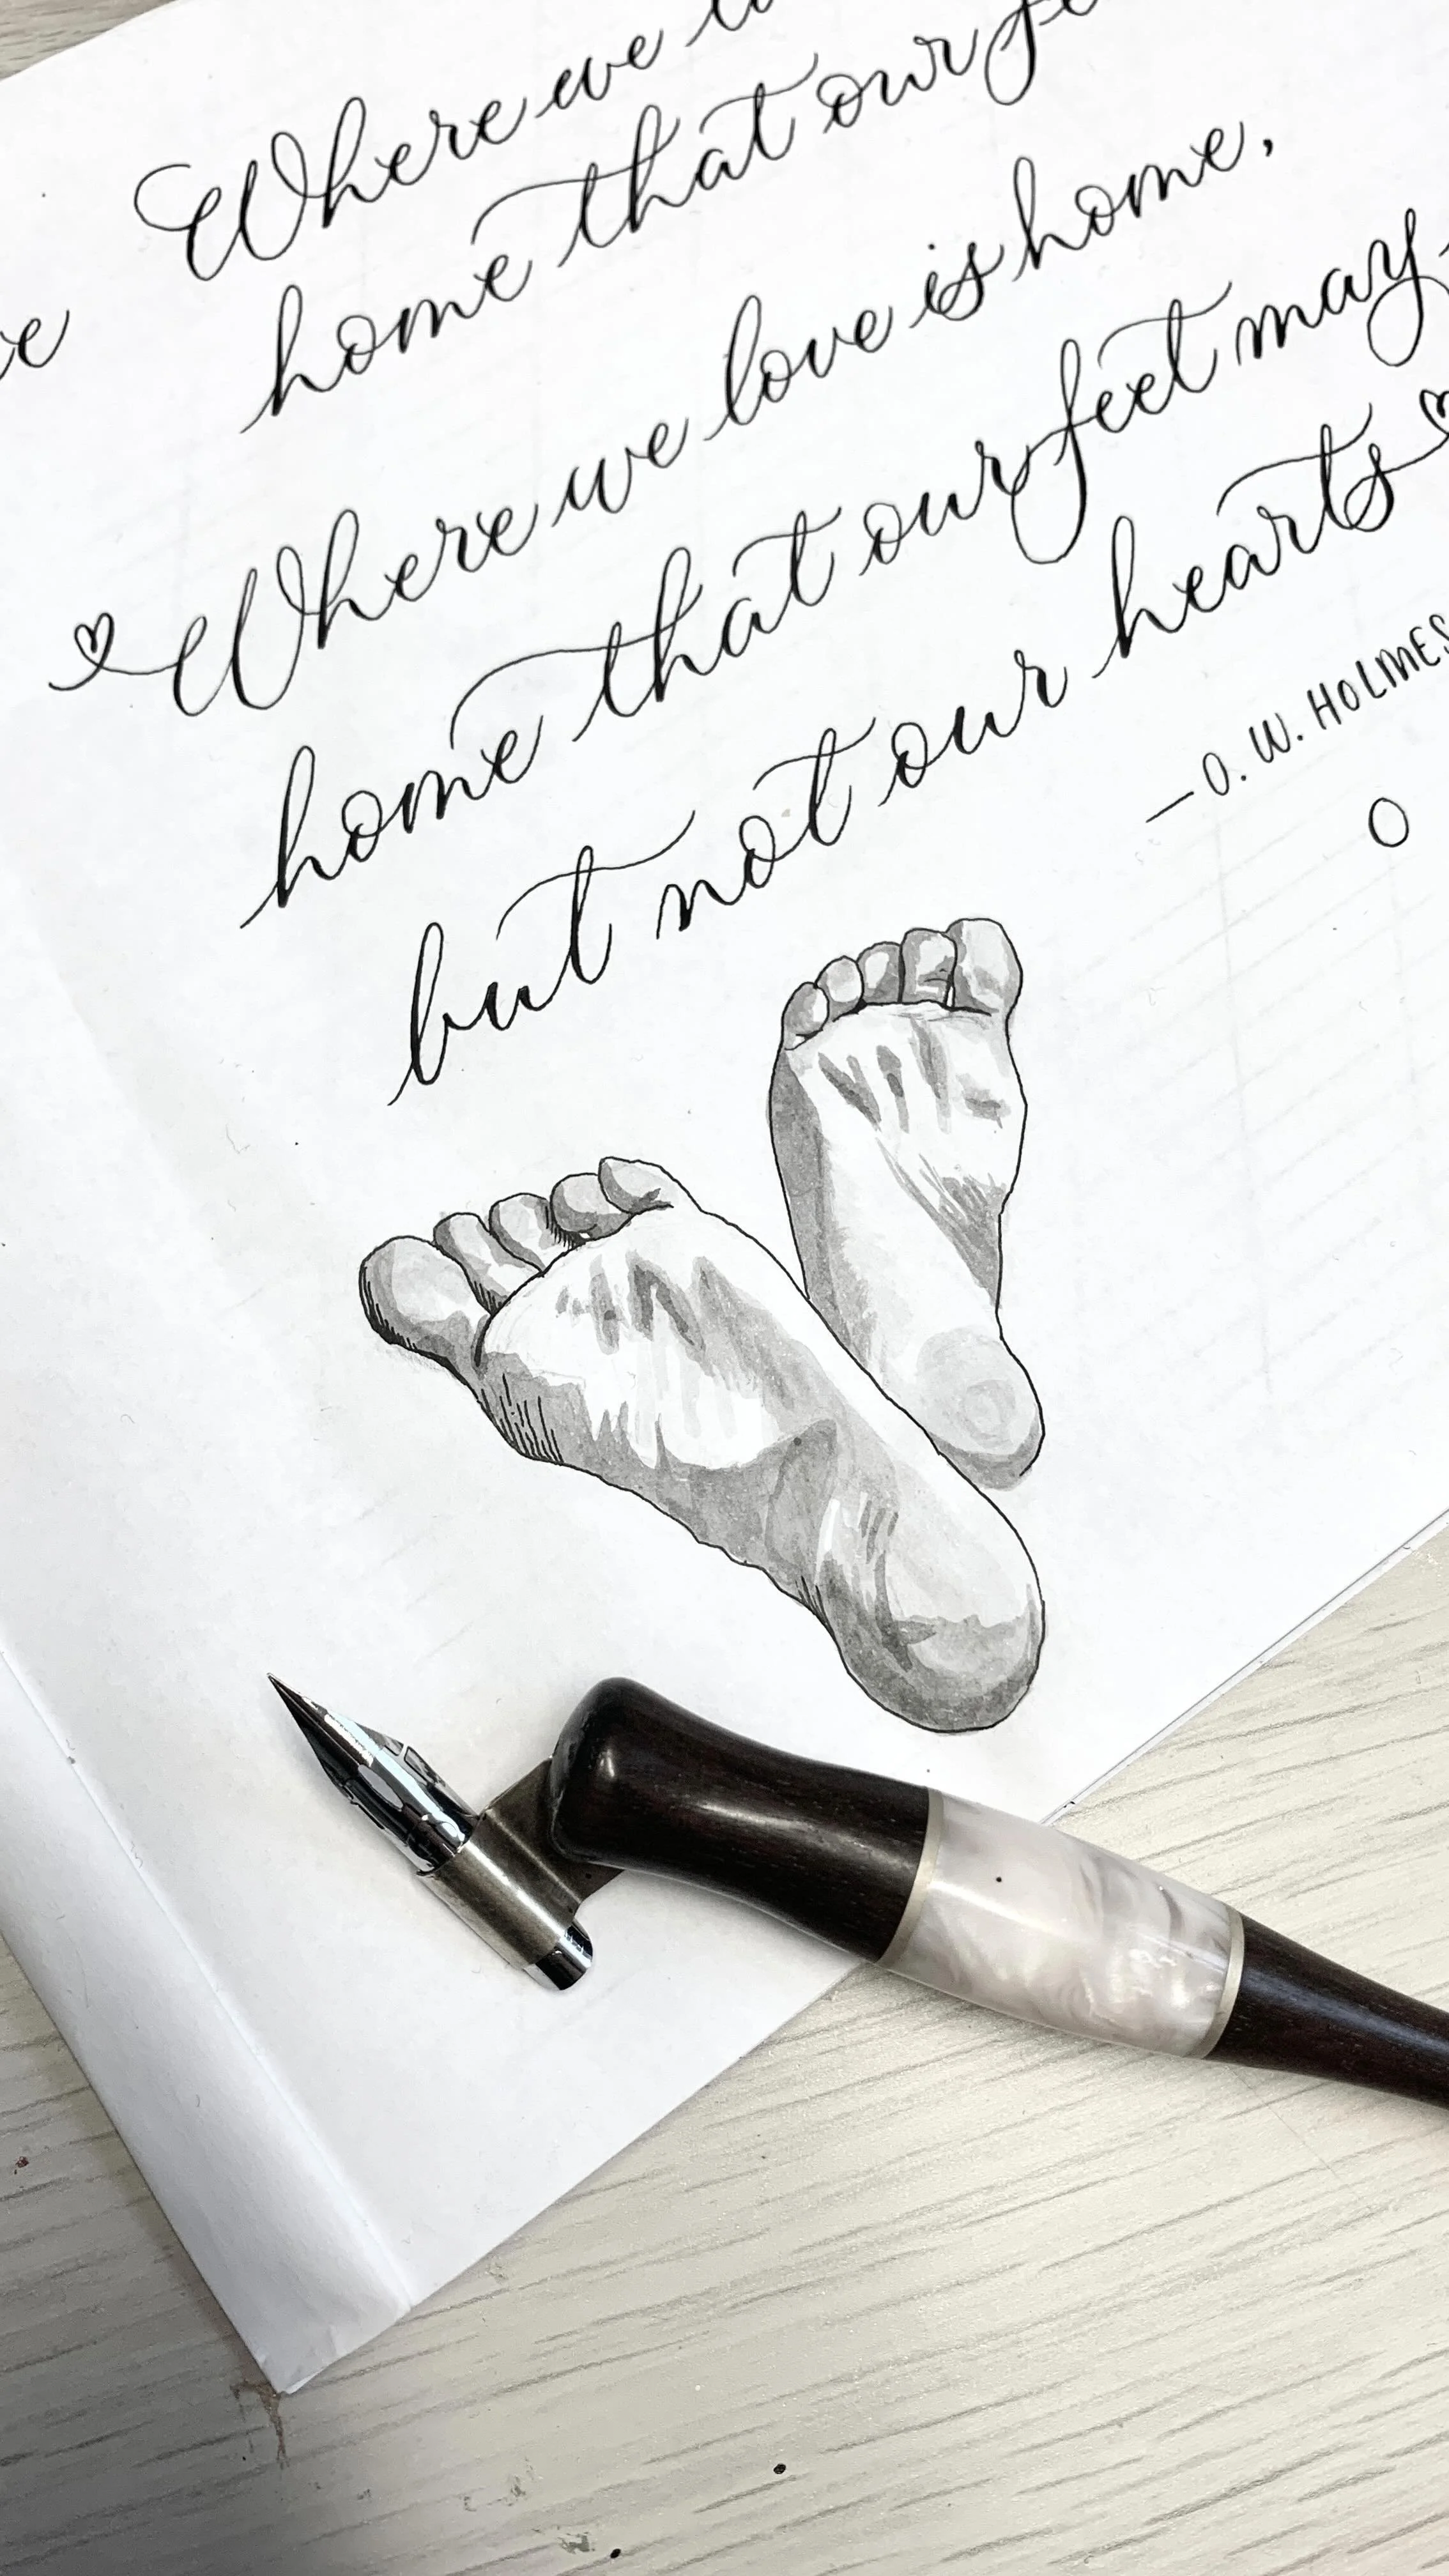 Where we
home that our
Where we love is home,
home that our feet may
but not our hearts
—O. W. HOLMES
O